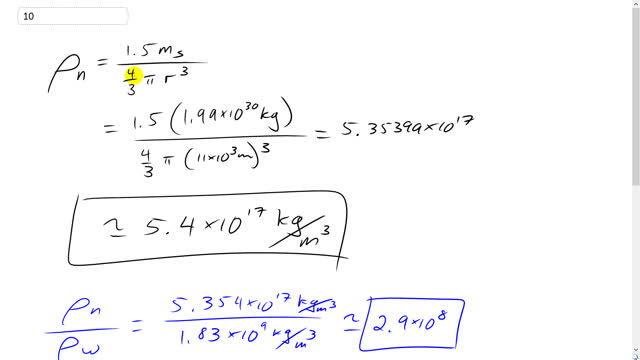 10
ρn = 1.5 ms / (4/3 π r^3)
= 1.5 (1.99×10^30 kg) / (4/3 π (11×10^3 m)^3) = 5.35399×10^17
≃ 5.4×10^17 kg/m^3
ρn/ρw = 5.354×10^17 kg/m^3 / 1.83×10^9 kg/m^3 ≃ 2.9×10^8